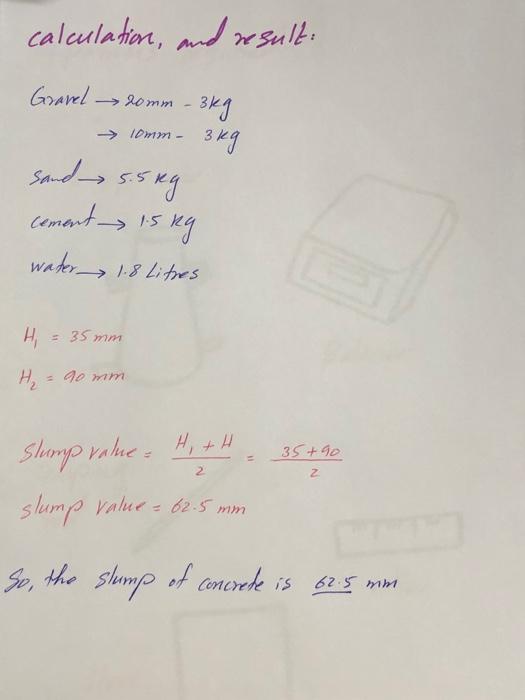 calculation, and result:
Gravel → 20mm - 3kg
→ 10mm - 3kg
Sand → 5.5 kg
cement → 1.5 kg
water → 1.8 Litres
H₁ = 35 mm
H₂ = 90 mm
Slump value = (H₁ + H)/2 = (35+90)/2
slump value = 62.5 mm
So, the slump of concrete is 62.5 mm